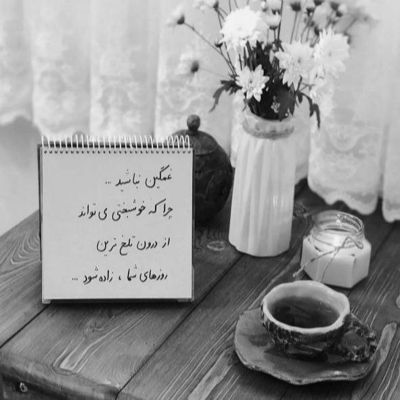 غمگین نباشید ...
چرا که خوشبختی می تواند
از درون تلخ ترین
روزهای شما ، زاده شود ...